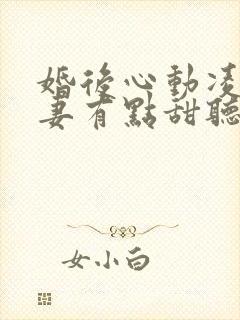 婚後心動凌
妻有點甜聽
女小白